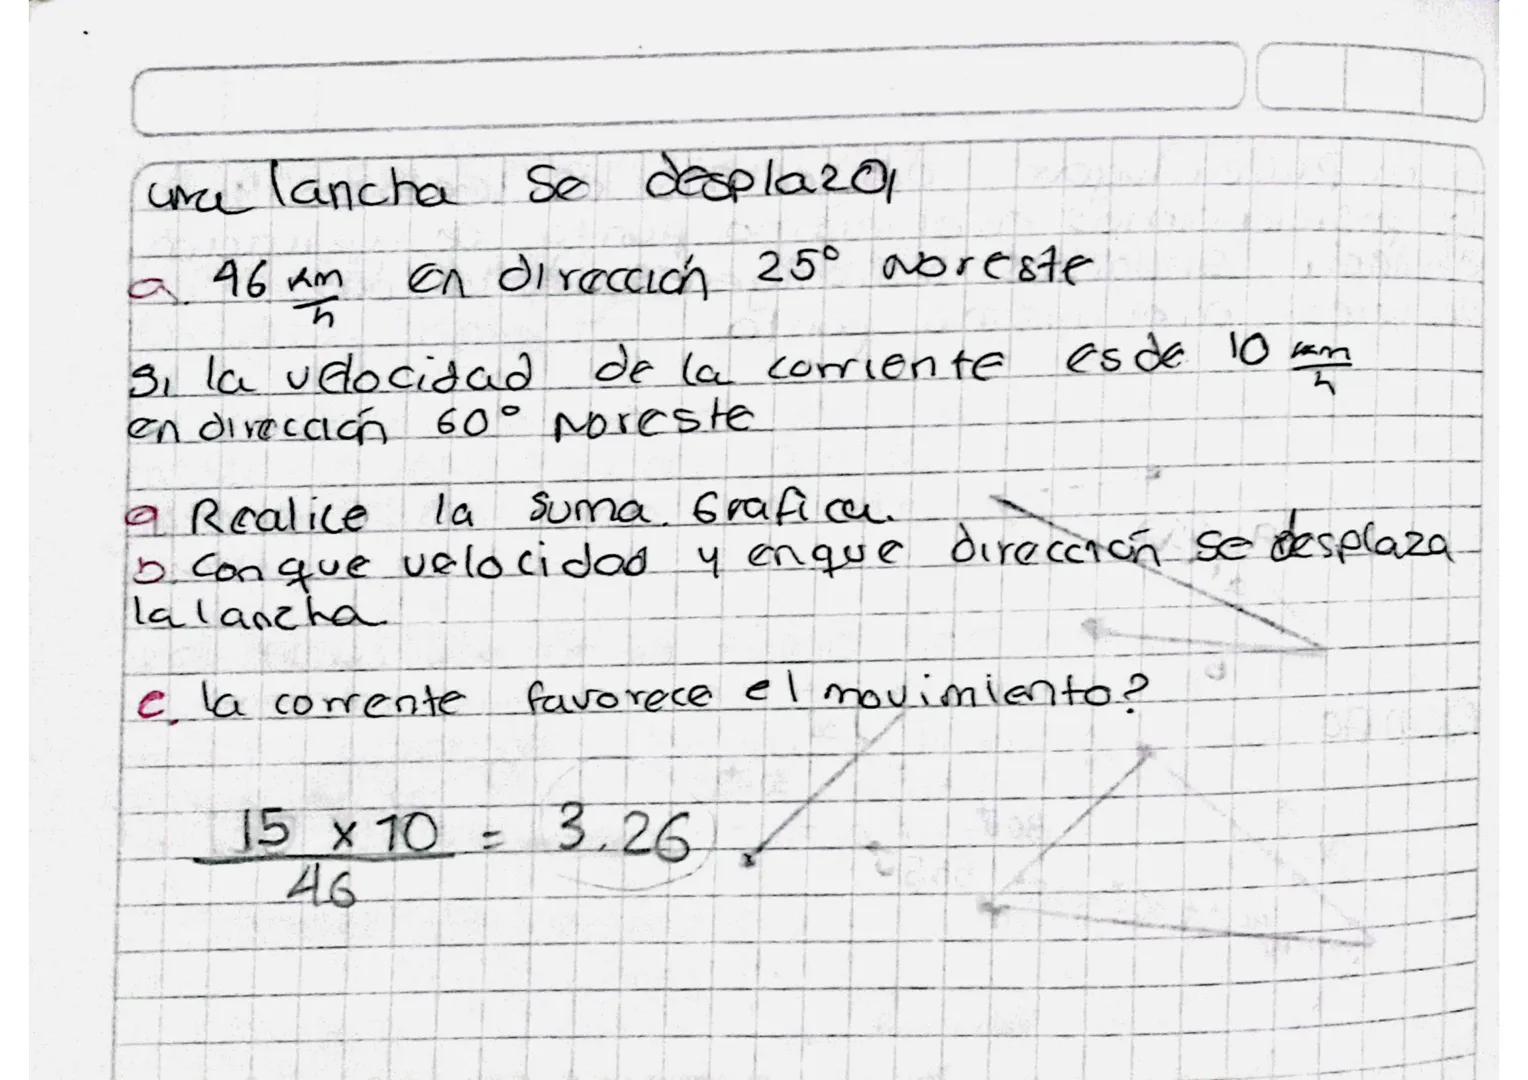 una lancha se desplazo,
a. 46 km/h en dirección 25° Noreste
si la velocidad de la corriente es de 10 km/h
en dirección 60° Noreste
a Realice la suma. Grafica.
b. con que velocidad y en que dirección se desplaza
la lancha
c. la corrente favorece el movimiento?
15 x 10 = 3.26
46